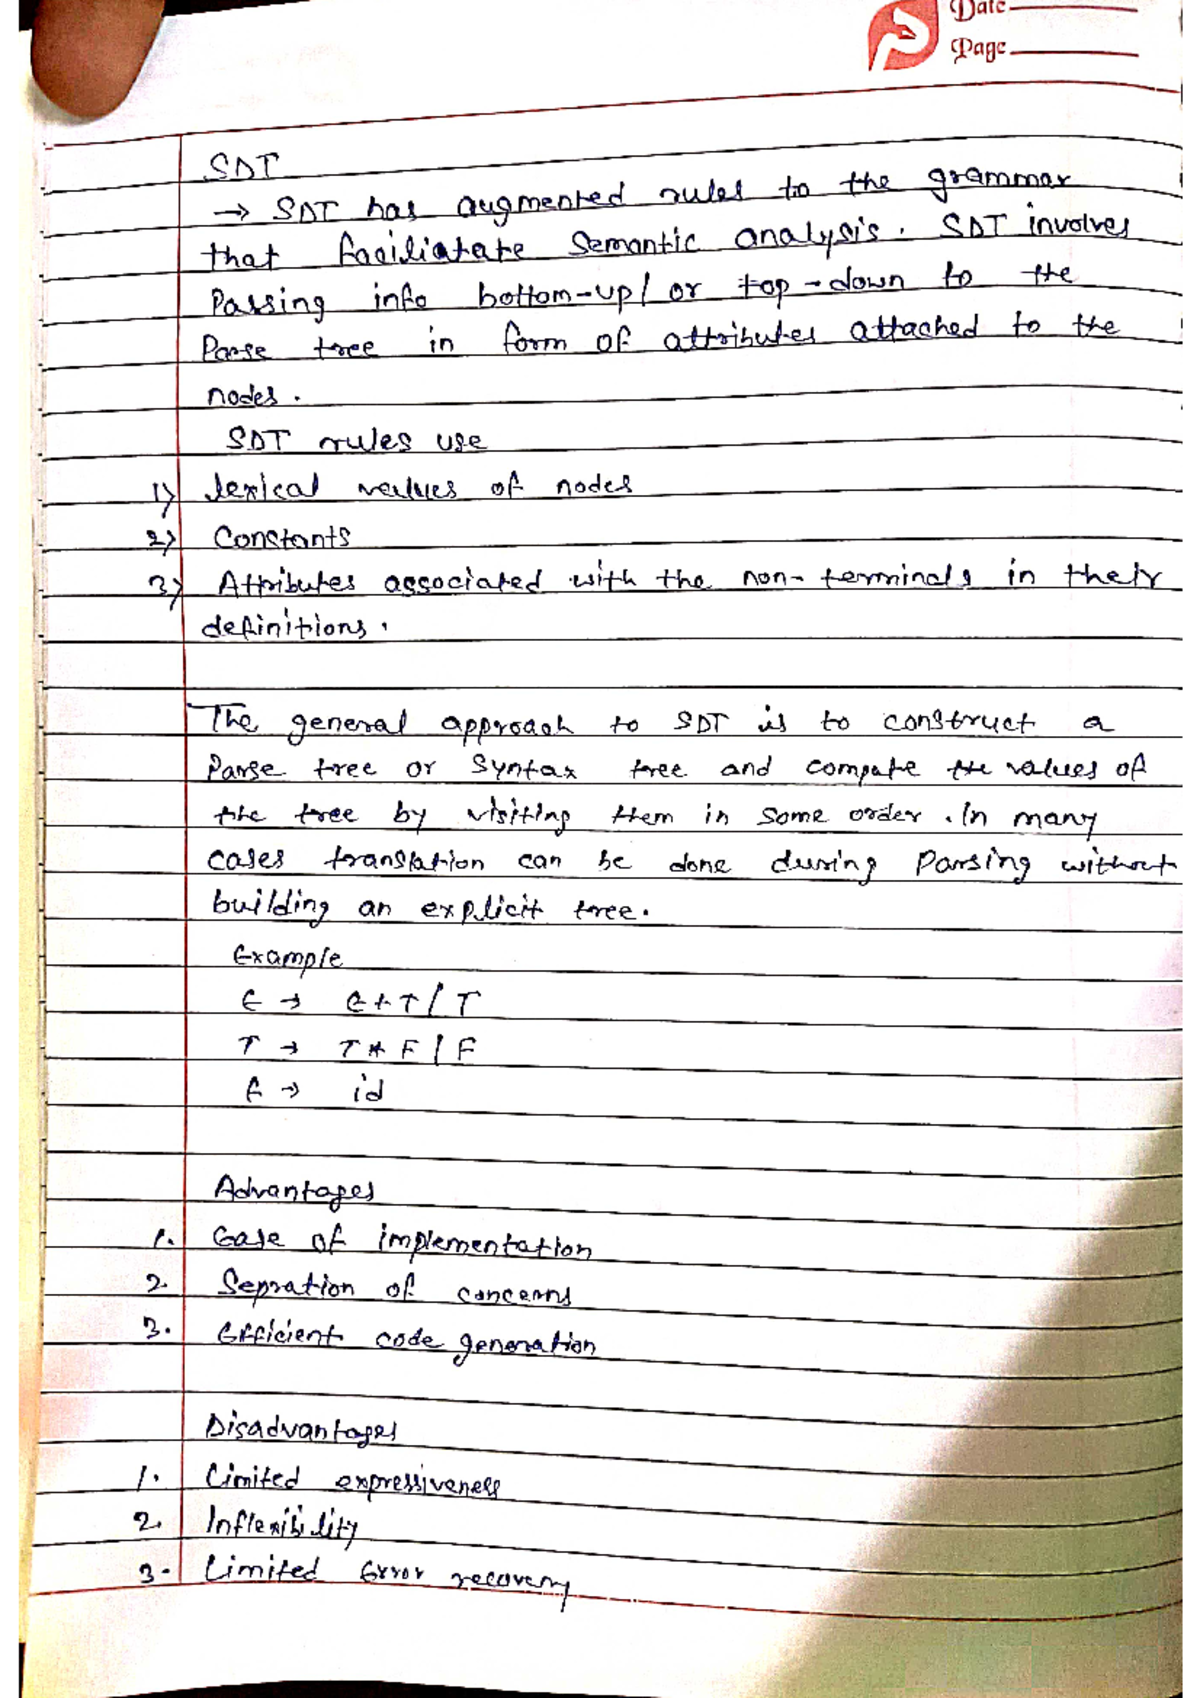 Date
Page
SDT
→ SDT has augmented rules to the grammar
that faciliatate Semantic analysis. SDT involves
Passing info bottom-up/ or top-down to the
Parse tree in form of attributes attached to the
nodes.
SDT rules use
1) lexical values of nodes
2) Constants
3) Attributes associated with the non-terminals in their
definitions.
The general approach to SDT is to construct a
Parse tree or Syntax tree and compute the values of
the tree by visiting them in some order. In many
cases translation can be done during Parsing without
building an explicit tree.
Example
E → E+T/T
T → T*F/F
F → id
Advantages
1. Ease of implementation
2. Sepration of concerns
3. Efficient code generation
Disadvantages
1. Limited expressiveness
2. Inflexibility
3. Limited Error recovery